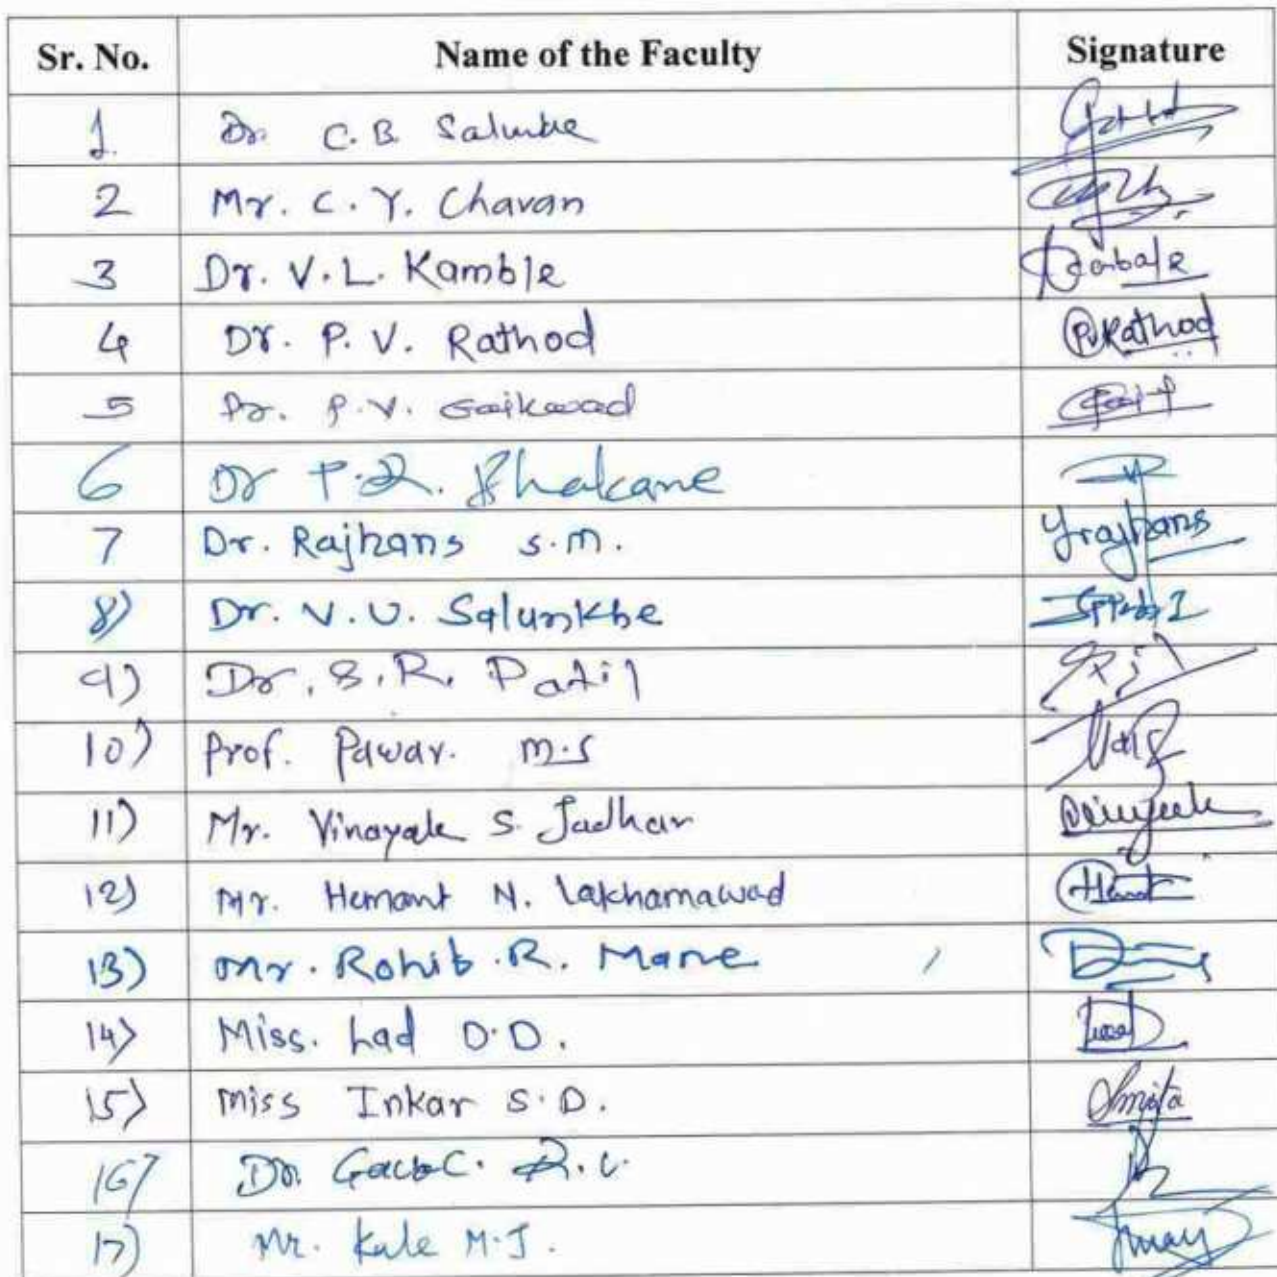 Sr. No. Name of the Faculty Signature
1. Dr. C.B. Salunke
2 Mr. C. Y. Chavan
3 Dr. V.L. Kamble
4 Dr. P. V. Rathod PVRathod
5 Dr. P.V. Gaikwad
6 Dr P.R. Bhakane
7 Dr. Rajhans S.M. Yrajhans
8) Dr. V.U. Salunkhe
9) Dr. S.R. Patil
10) Prof. Pawar. M.S
11) Mr. Vinayak S. Jadhav
12) Mr. Hemant N. Lakhamawad
13) Mr. Rohit R. Mane
14) Miss. Lad D.D. Lad
15) Miss Inkar S.D. Smita
16) Dr.
17) Mr. Kale M.J.